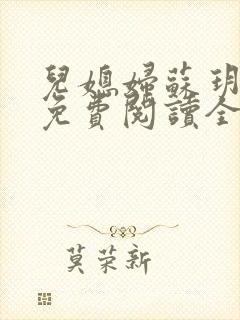 兒媳婦蘇玥
免費閱讀全
莫荣新